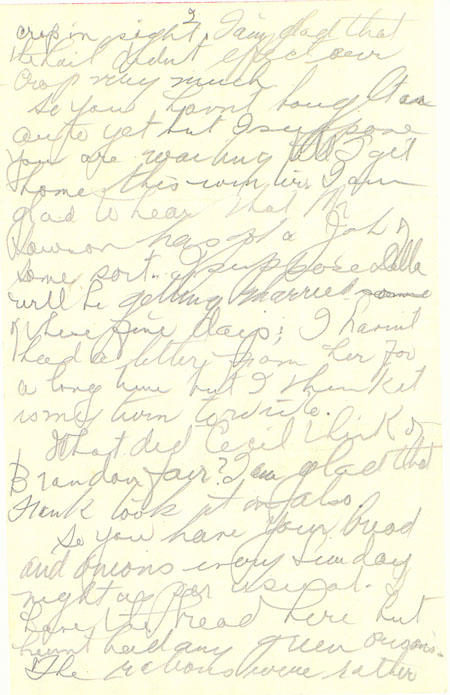 crop in sight? I am glad that
the hail didnt efect our
crop very much
So you havnt bought an
auto yet but I suppose
you are waiting till I get
home this winter I am
glad to hear that Mr
Dawson has got a Job of
some sort. I suppose Della
will be getting married some
of these fine days; I havint
had a letter from her for
a long time but I think it
is my turn to write.
What did Cecil think of
Brandon fair? I am glad that
Hank took it in also.
So you have your bread
and onions every Sunday
night as per usual. I
have the bread here but
havnt had any green onions.
The rations were rather